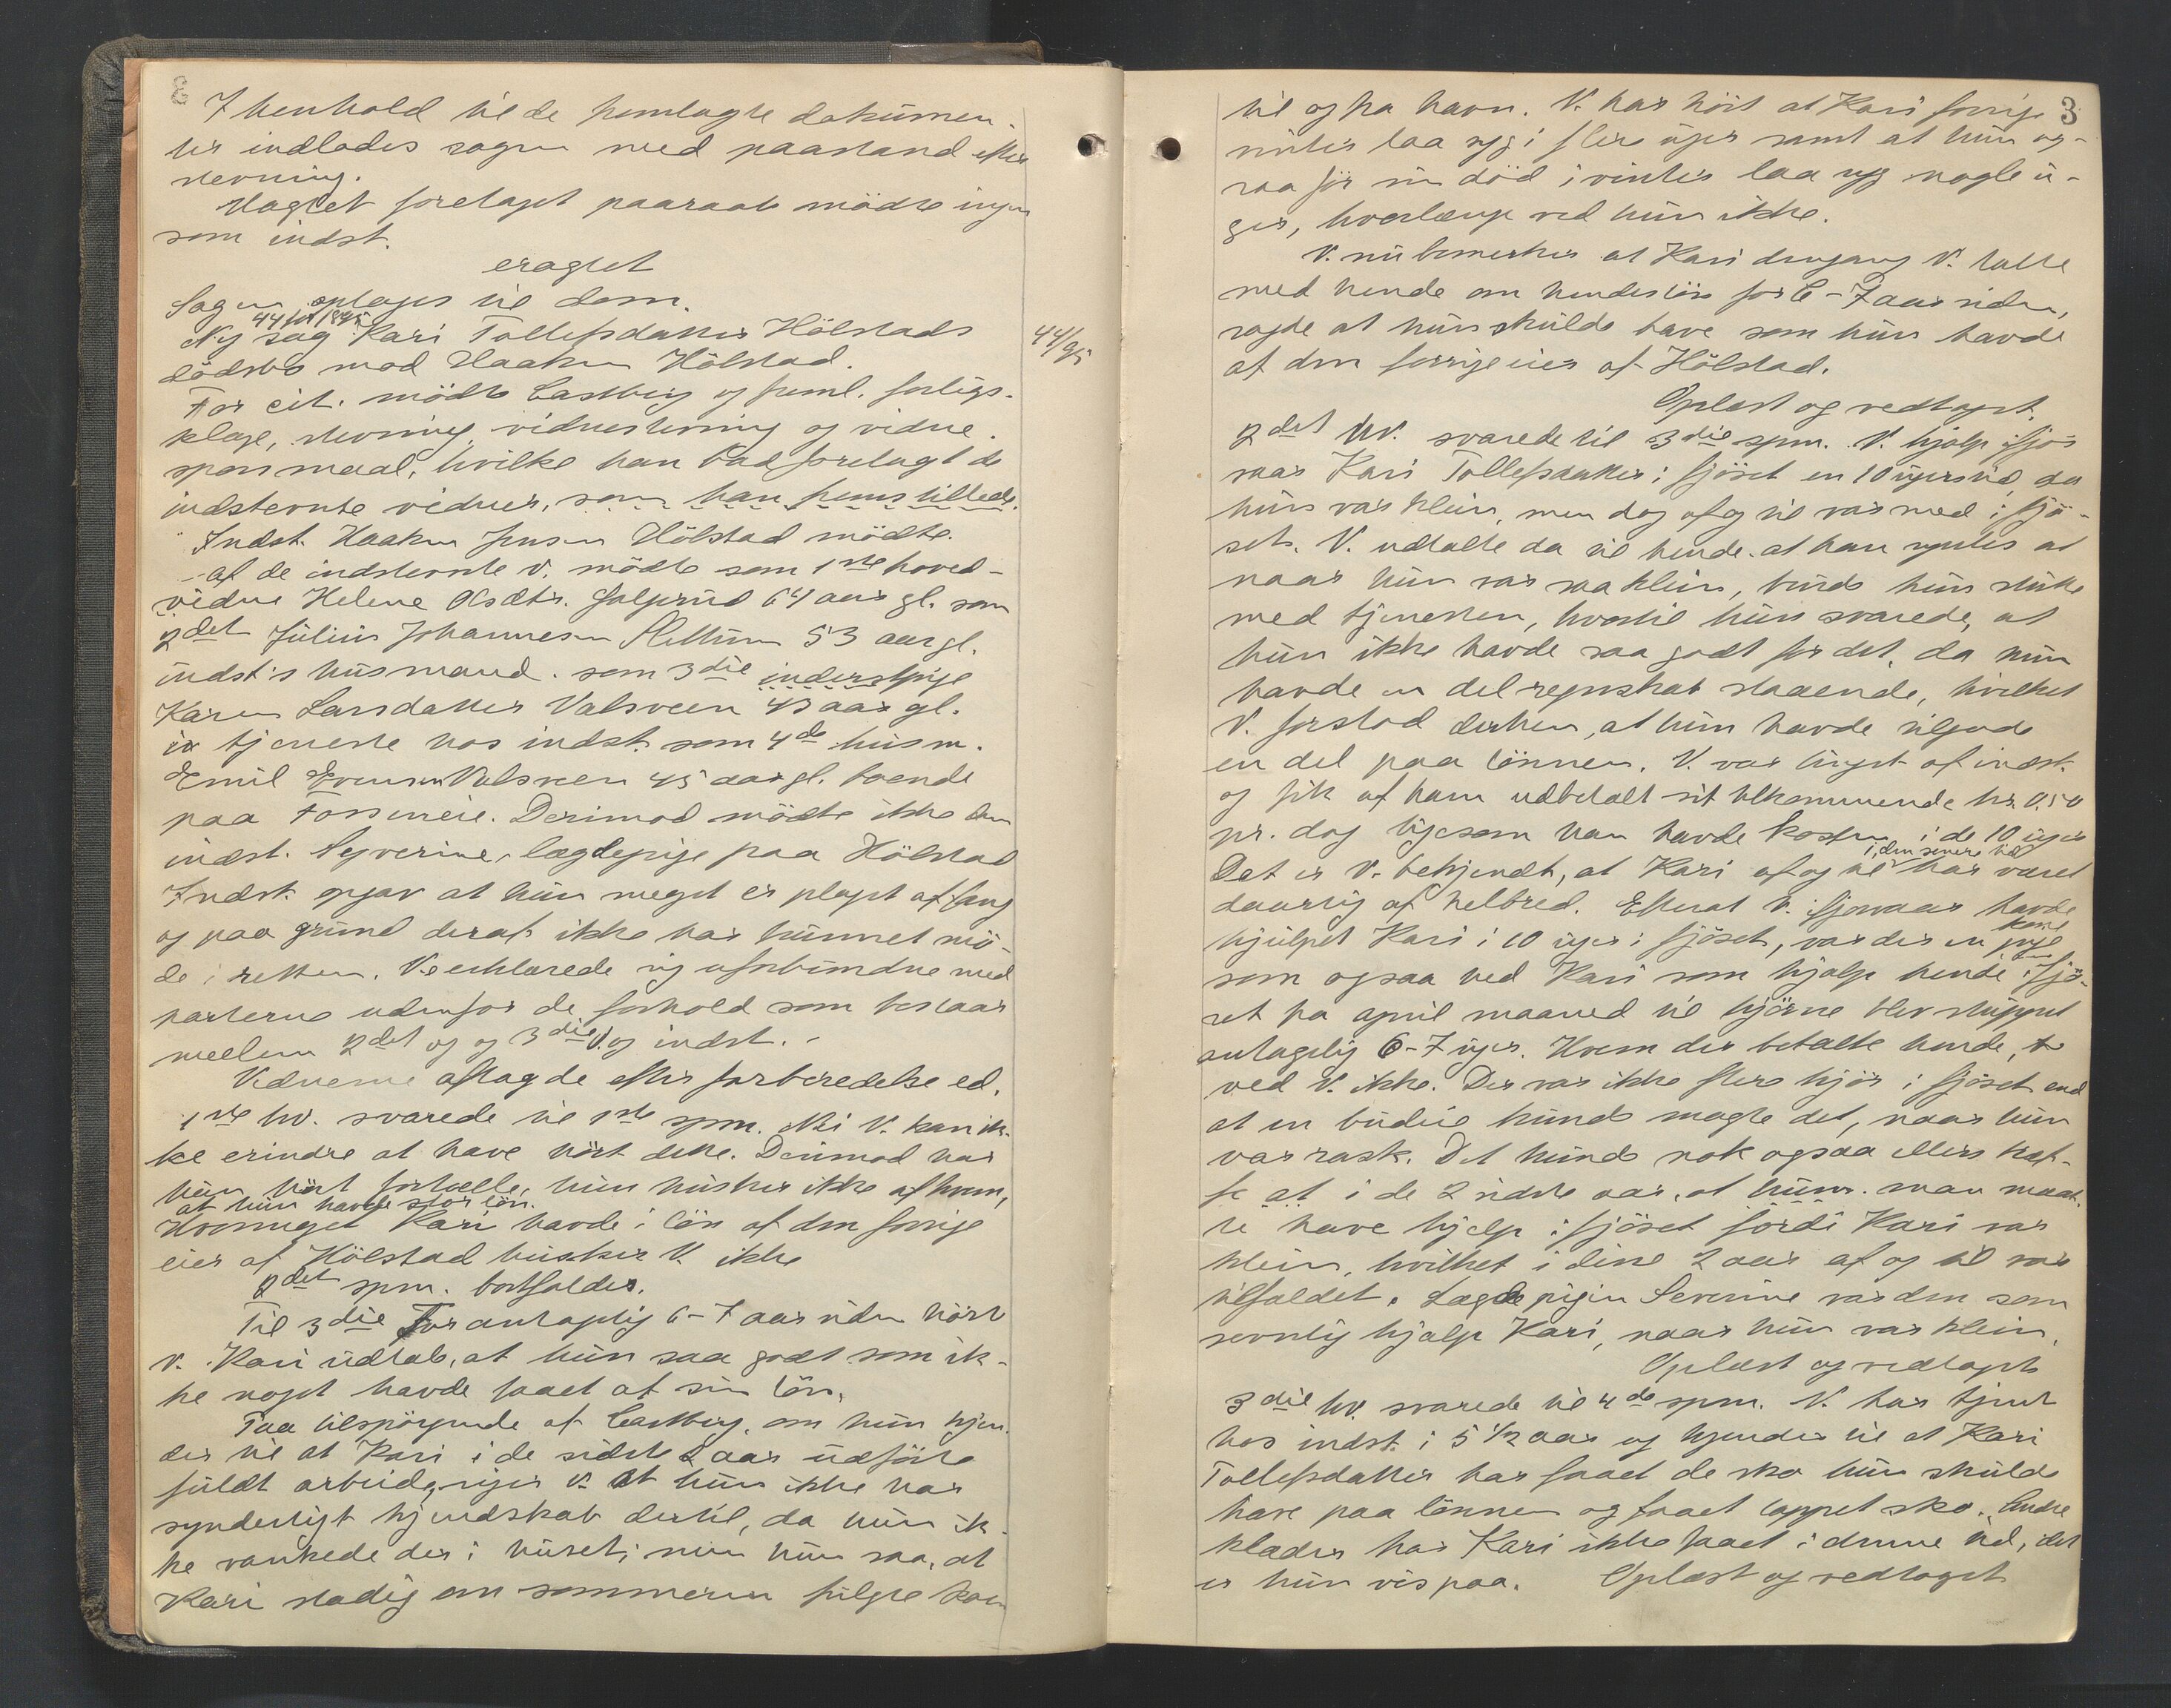 I henhold til de fremlagte dokumen-
ter indlodes sagen med paastand efter
stevning.
Uagtet foretaget paaraab mødte ingen
som indst.
eragtet
Sagen optages til dom.
44 for 1895
Ny sag Kari Tollefsdatter Hölstads
dödsbo mod Haaken Hölstad.
44/95
For cit. mødte Castberg og freml. forligs-
klage, stevning, vidnestevning og vidne-
spørsmaal, hvilke han bad forelagt de
indstevnte vidner, som han fremstillede.
Indst. Haaken Jensen Hölstad mødte.
af de indstevnte v. mødte som 1ste hoved-
vidne Helene Olsdtr. Galgerud 64 aar gl. som
2det Julius Johannesen Slettum 53 aar gl.
indst's husmand. som 3die inderstpige
Karen Larsdatter Valsveen 43 aar gl.
i tjeneste hos indst. som 4de husm.
Emil Evensen Valsveen 45 aar gl. boende
paa Fosseneie. Derimod mødte ikke den
indst. Syverine, lægdepige paa Hölstad
Indst. opgav at hun meget er plaget af
og paa grund deraf ikke har kunnet mö-
de i retten. V. erklærede sig uforbundne med
parterne udenfor de forhold som bestaar
mellem 2det og og 3die V. og indst. -
Vidnerne aflagde efter forberedelse ed.
1ste hv. svarede til 1ste spm. Nei V. kan ik-
ke erindre at have hört dette. Derimod har
hun hört fortælle, hun husker ikke af hvem,
at hun havde stor løn.
Hvormeget Kari havde i lön af den forrige
eier af Hölstad husker V. ikke
2det spm. bortfalder.
Til 3die For antagelig 6-7 aar siden hörte
v. Kari udtale, at hun saa godt som ik-
ke noget havde faaet af sin lön.
Paa tilspørgende af Castberg, om hun kjen-
der til at Kari i de sidste 2 aar udførte
fuldt arbeide, siger v. at hun ikke har
synderligt kjendskab dertil, da hun ik-
ke vankede der i huset; men hun saa, at
Kari stadig om sommeren fulgte kom
3
til og fra havn. V. har hört at Kari forrige
vinter laa syg i flere uger samt at hun og-
saa för sin död i vinter laa syg nogle u-
ger, hvorlænge ved hun ikke.
V. nu bemerker at Kari dengang V. talte
med hende om hendes lön for 6-7 aar siden,
sagde at hun skulde have som hun havde
af den forrige eier af Hölstad.
Oplæst og vedtaget.
2det hv. svarede til 3die spm. V. hjalp ifjor
vaar Kari Tollefsdatter i fjöset en 10 ugers tid, da
hun var klein, men dog af og til var med i fjö-
set. V. udtalte da til hende at han syntes at
naar hun var saa klein, burde hun slutte
med tjenesten, hvortil hun svarede, at
hun ikke havde saa godt for det, da hun
havde en del regnskab staaende, hvilket
V. forstod derhen, at hun havde tilgode
en del paa lönnen. V. var leiget af indst.
og fik af ham udbetalt sit tilkommende kr. 0,50
pr. dag ligesom han havde kosten i de 10 uger
Det er V. bekjendt, at Kari af og til i den senere tid har været
daarlig af helbred. Efterat V. ifjorvaar havde
hjulpet Kari i 10 uger i fjöset, var der en pige
som ogsaa hed Kari som hjalp hende i fjö-
set fra april maaned til kjörne blev sluppet
antagelig 6-7 uger. Hvem der betalte hende,
ved V. ikke. Der var ikke flere kjör i fjöset end
at en budeie kunde magte det, naar hun
var rask. Det hunde nok ogsaa ellers træf-
fe at i de 2 sidste aar, at man maat-
te have hjelp i fjöset fordi Kari var
klein, hvilket i disse 2 aar af og til var
tilfældet. Lægdepigen Severine var den som
jevnlig hjalp Kari, naar hun var klein.
Oplæst og vedtaget
3die hv. svarede til 4de spm. V. har tjent
hos indst. i 5 1/2 aar og kjender til at Kari
Tollefsdatter har faaet de sko hun skulde
have paa lönnen og faaet lappet sko. Andre
klæder har Kari ikke faaet i denne tid, det
er hun vis paa. Oplæst og vedtaget